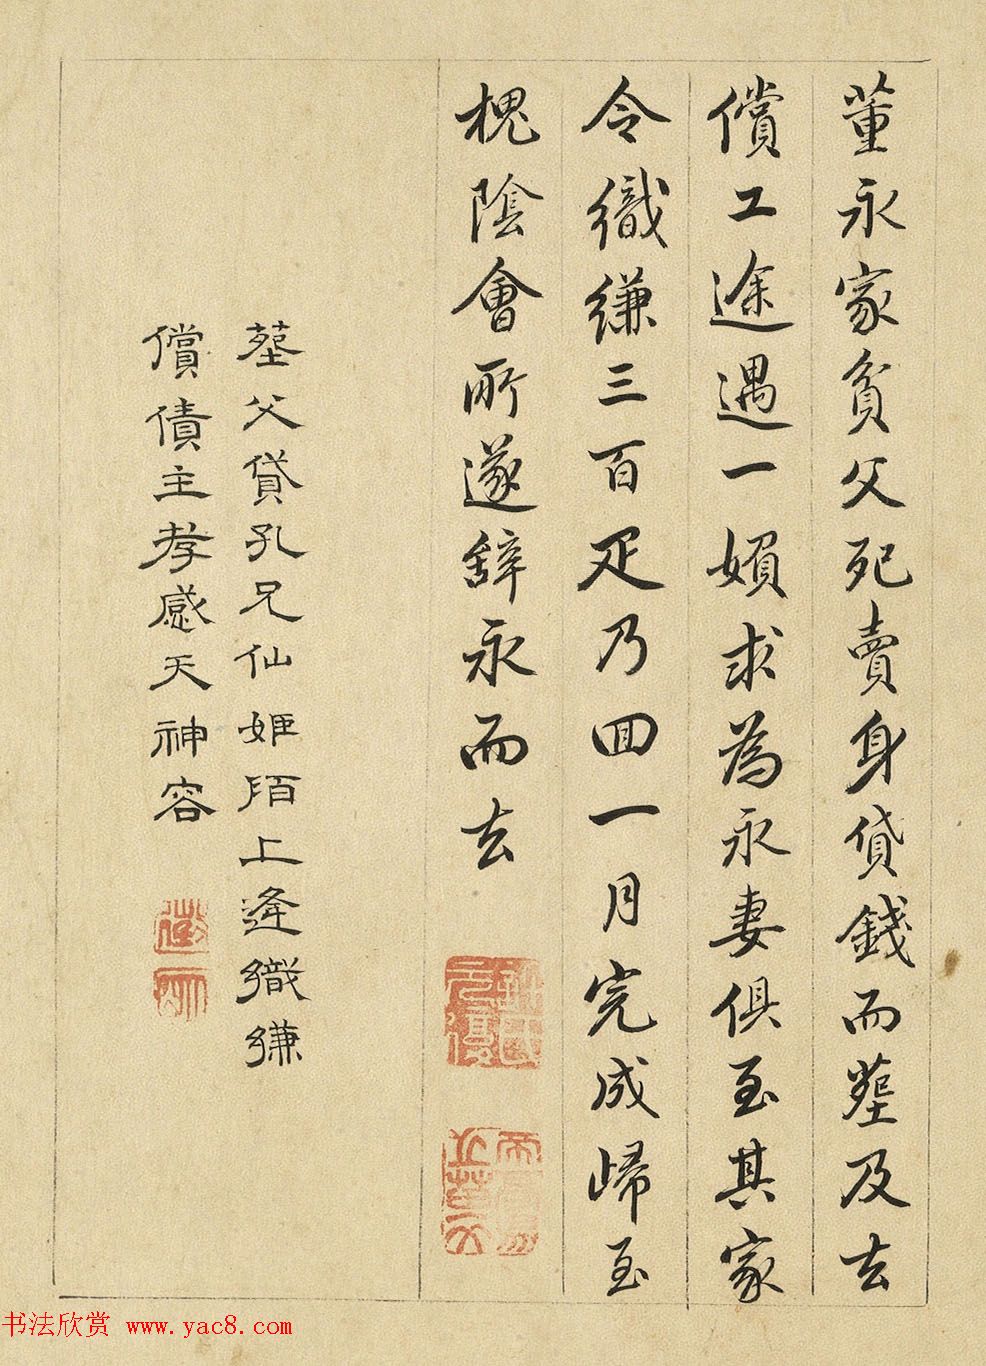 董永家貧父死賣身貸錢而塟及去
償工途遇一婦求為永妻俱至其家
令織縑三百疋乃囬一月完成歸至
槐陰會所遂辭永而去
塟父貸孔兄仙姬陌上逢織縑
償債主孝感天神容
书法欣赏 www.yac8.com